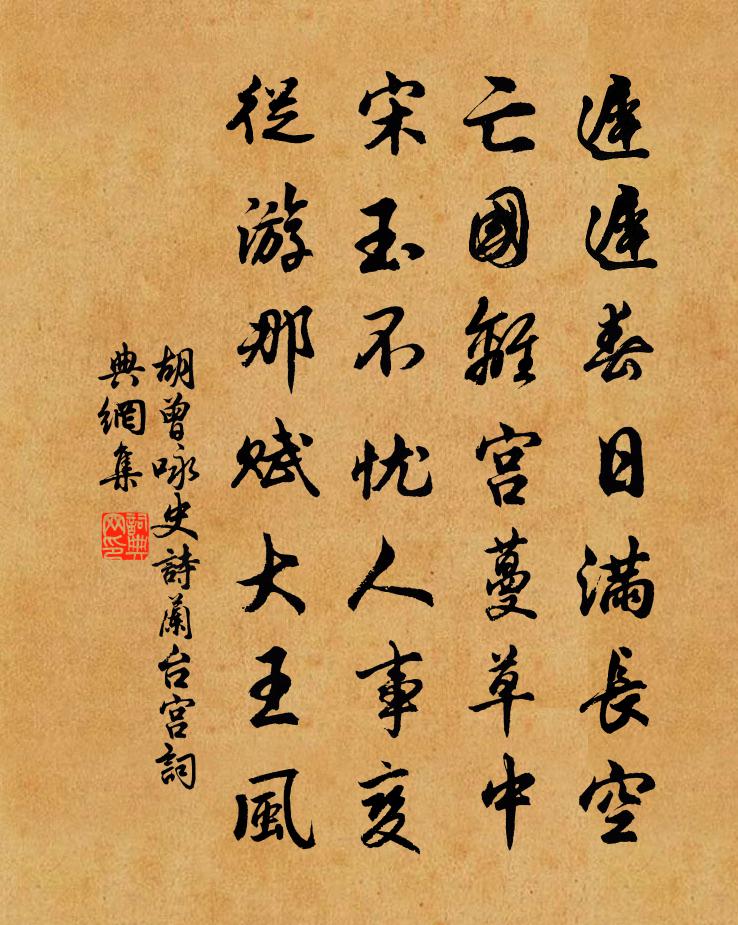 遲遲春日滿長空
亡國離宮蔓草中
宋玉不忧人事変
從游那赋大王風
胡曾咏史詩蘭台宮詞
典網集
詞典網印